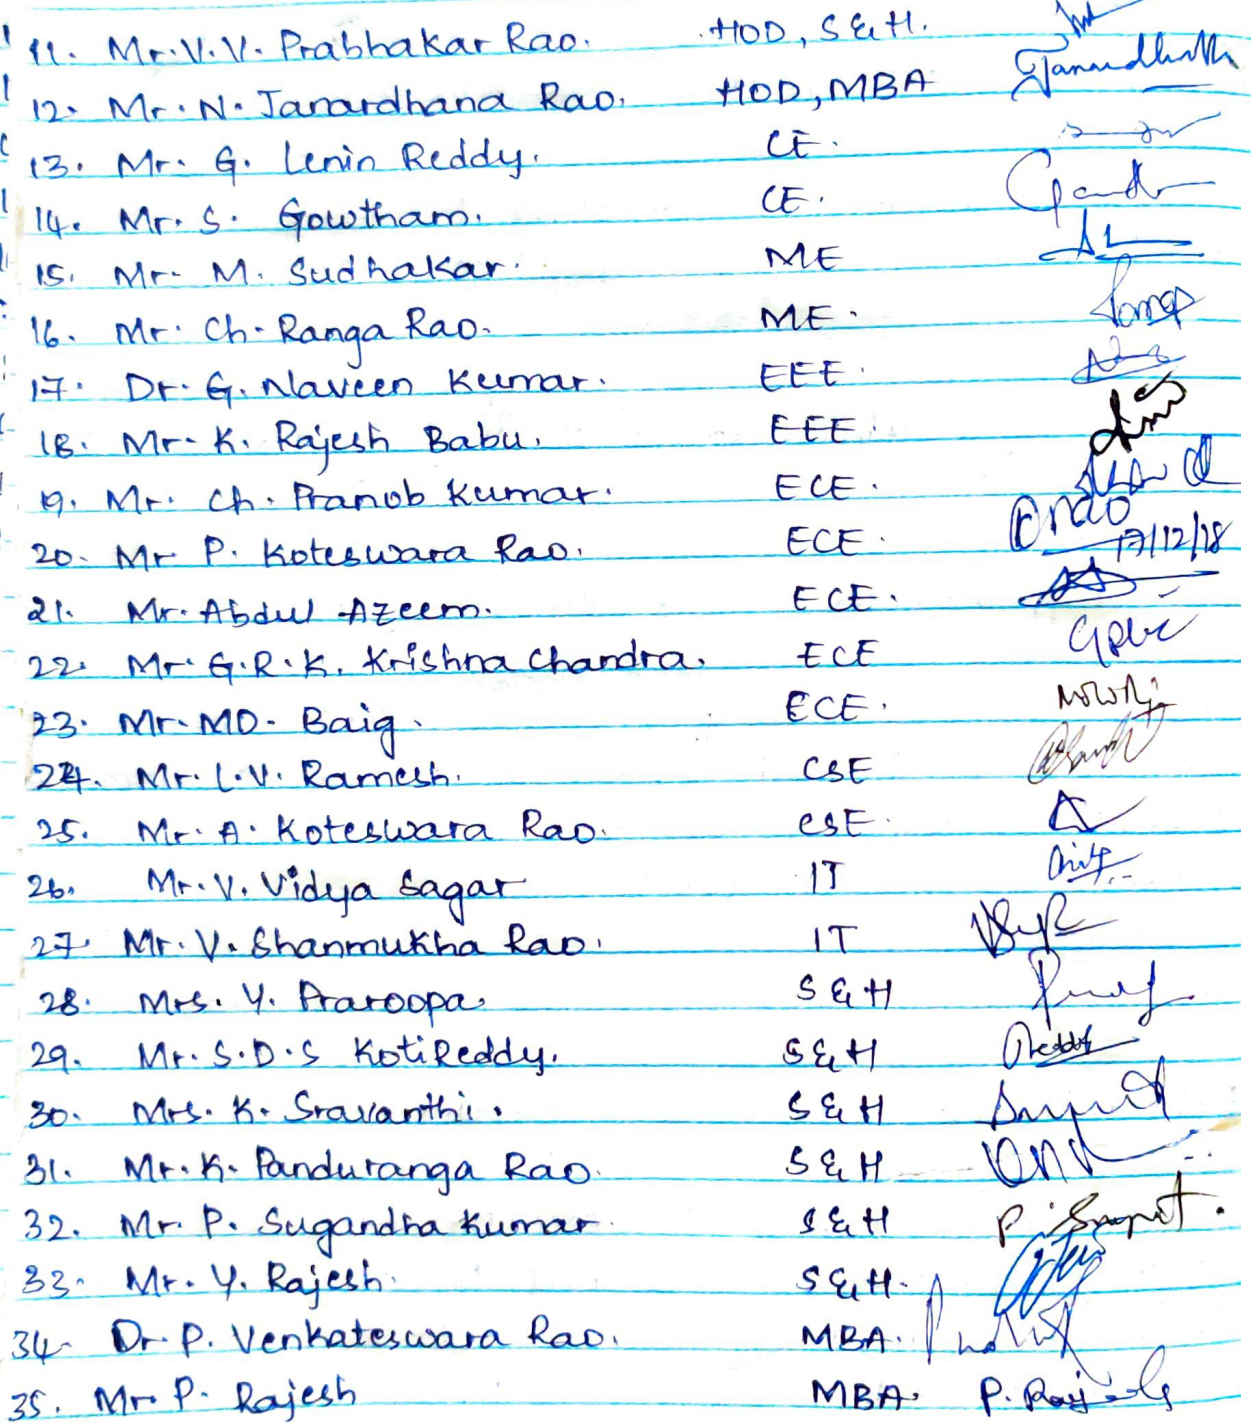 11. Mr. V. V. Prabhakar Rao. HOD, S&H.
12. Mr. N. Janardhana Rao. HOD, MBA
13. Mr. G. Lenin Reddy. CE.
14. Mr. S. Gowtham. CE.
15. Mr. M. Sudhakar. ME
16. Mr. Ch. Ranga Rao. ME.
17. Dr. G. Naveen Kumar. EEE.
18. Mr. K. Rajesh Babu. EEE.
19. Mr. Ch. Pranob Kumar. ECE.
20. Mr P. Koteswara Rao. ECE. 17/12/18
21. Mr. Abdul Azeem. ECE.
22. Mr. G.R.K. Krishna Chandra. ECE
23. Mr. MD. Baig. ECE.
24. Mr. L.V. Ramesh. CSE
25. Mr. A. Koteswara Rao. CSE.
26. Mr. V. Vidya Sagar IT
27. Mr. V. Shanmukha Rao. IT
28. Mrs. Y. Praroopa. S&H
29. Mr. S.D.S KotiReddy. S&H Reddy
30. Mrs. K. Sravanthi. S&H
31. Mr. K. Panduranga Rao. S&H
32. Mr. P. Sugandha Kumar. S&H
33. Mr. Y. Rajesh. S&H.
34. Dr. P. Venkateswara Rao. MBA.
35. Mr. P. Rajesh MBA.